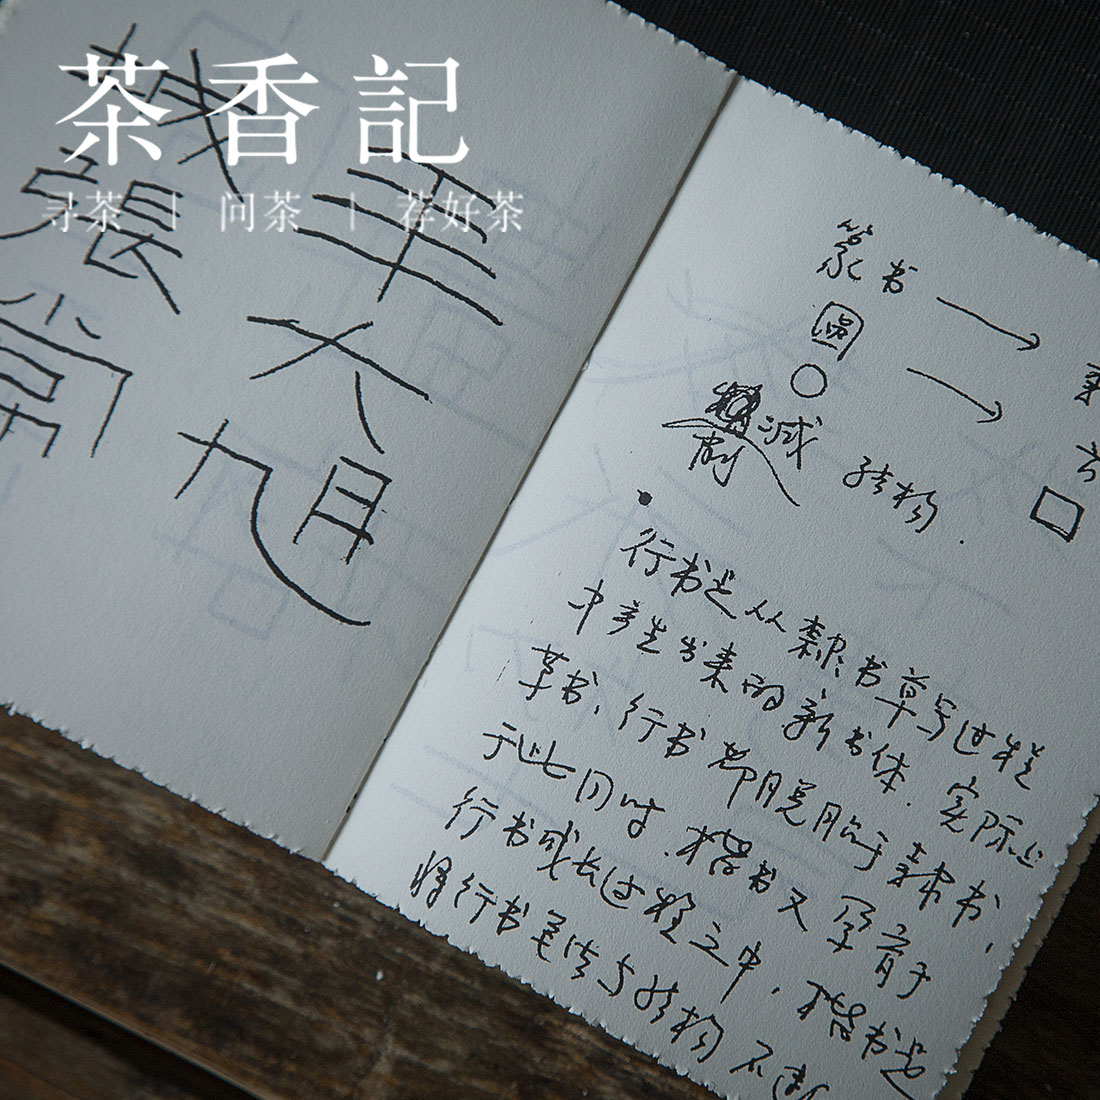 茶香記
寻茶 | 问茶 | 荐好茶
張
常
大
旭
篆书 →
圓 →
○ □
减
结构.
• 行书是从隶书草写过程
中产生出来的新书体.实际上
草书、行书都脱胎于隶书,
于此同时.楷书又孕育于
行书成长过程之中,楷书是
将行书笔法与结构不断